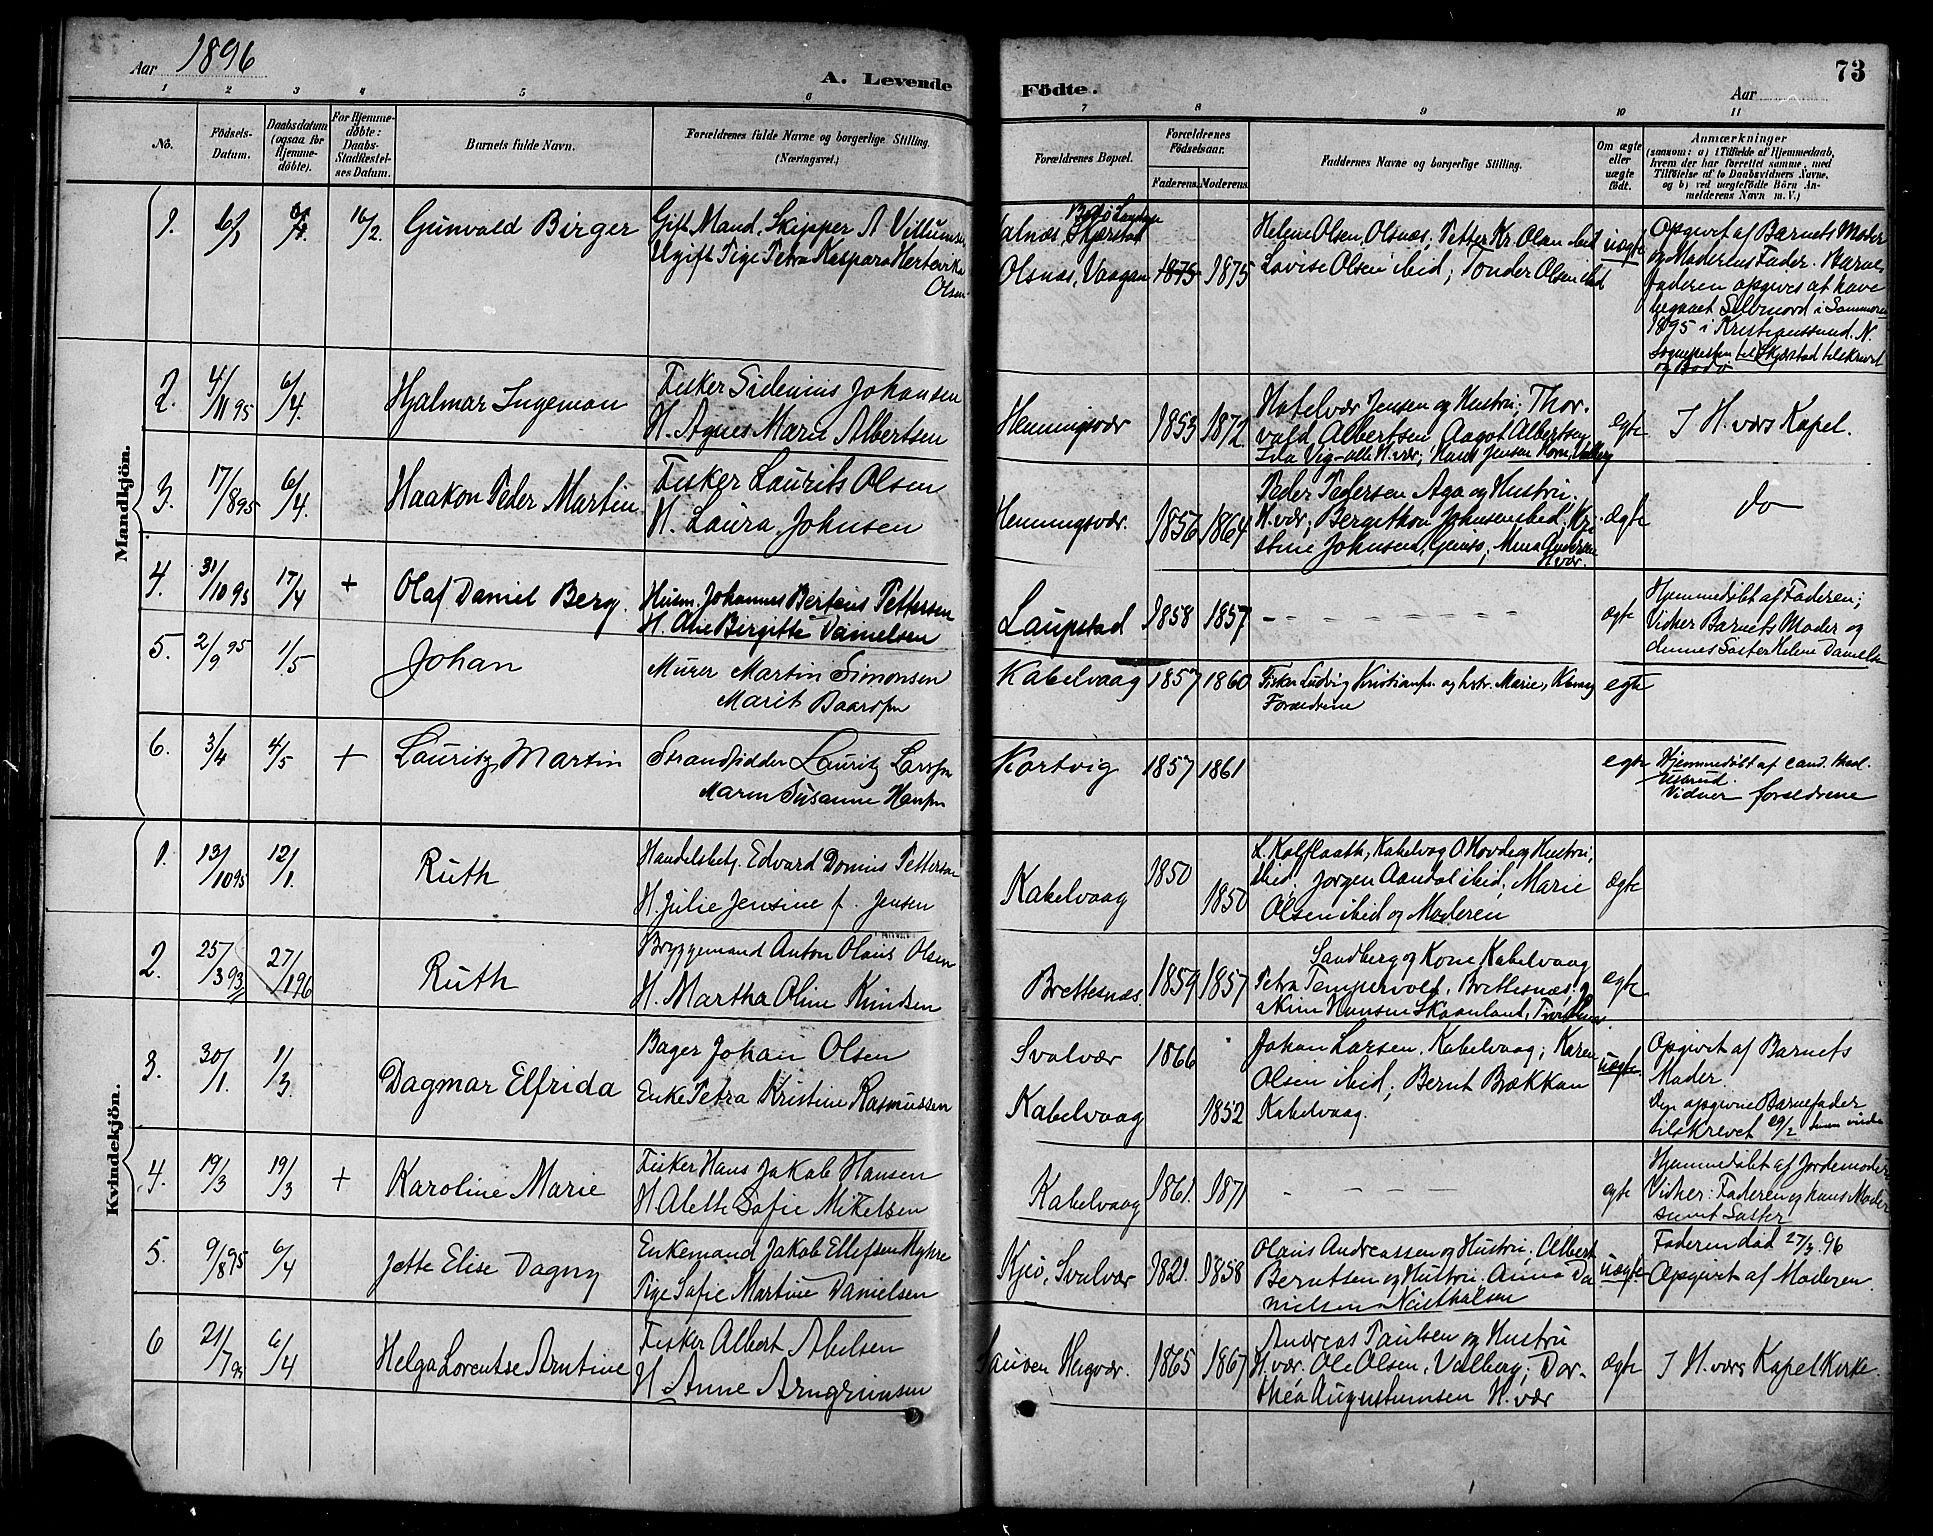 Aar 1896
A. Levende
Födte.
73
Aar
1 2 3 4 5 6 7 8 9 10 11
No.
Födsels-
Datum.
Daabsdatum
(ogsaa for
Hjemme-
döbte).
For Hjemme-
döbte:
Daabs-
Stadfæstel-
ses Datum.
Barnets fulde Navn.
Forældrenes fulde Navne og borgerlige Stilling.
(Næringsvei.)
Forældrenes Bopæl.
Forældrenes
Födselsaar.
Faderens. Moderens.
Faddernes Navne og borgerlige Stilling.
Om ægte
eller
uægte
födt.
Anmærkninger
(saasom: a) i Tilfælde af Hjemmedaab,
hvem der har forrettet samme, med
Tilföielse af to Daabsvidners Navne,
og b) ved uægtefödte Börn An-
melderens Navn m. V.)
Mandkjön.
1. 6/1 16/2. Gunvald Birger
Gift Mand, Skipper A
Ugift Pige Petra Kaspara
Olsen
Skjerstad
Olsnæs, Vaagan 1875 1875
Helene Olsen, Olsnæs; Petter Kr. Olsen ibid
Lovise Olsen ibid; Tonder Olsen ibid
uægte
Opgivet af Barnets Moder
og Moderens Fader. Barne-
faderen opgives at have
begaaet Selvmord i Sommeren
1895 i Kristianssund. N.
til Skjerstad tilskrevet
og Bodø
2. 4/11 95 6/4. Hjalmar Ingeman
Fisker Sidenius Johansen
H. Agnes Marie Albertsen
Henningsvær 1853 1872
Jensen og Hustru; Thor-
vald Albertsen Aagot Albertsen
egte
I H.værs Kapel.
3. 17/8 95 6/4. Haakon Peder Martin
Fisker Laurits Olsen
H. Laura Johnsen
Henningsvær. 1856 1864
Peder Pedersen Aga og Hustru.
H.vær; Bergithon Johnsen ibid; Kri-
stine Johnsen, Gimsø;
H.vær.
ægte
do
4. 31/10 95 17/4 + Olaf Daniel Berg.
Husm. Johannes Berteus Pettersen
H. Ane Birgitte Danielsen
Laupstad 1858 1857
ægte
Hjemmedøbt af Faderen;
Vidner Barnets Moder og
dennes Søster Helene Danielsen
5. 2/9 95 1/5 Johan
Murer Martin Simonsen
Marit Baardsen
Kabelvaag 1857 1860
Fisker Ludvig Kristiansen og hstr. Marie,
Forældrene
egte
6. 3/4 4/5 + Lauritz Martin
Strandsidder Lauritz Larssen
Maren Susanne Hansen
Kartvig 1857 1861
egte
Hjemmedøbt af cand. med.
Vidner forældrene
Kvindekjön.
1. 13/10 95 12/1. Ruth
Handelsbetj. Edvard Petterson
H. Julie Jensine f. Jensen
Kabelvaag 1850 1850
L. Kalflaath, Kabelvag O Hovde og Hustru,
ibid. Jørgen Aandal ibid; Marie
Olsen ibid og Moderen
ægte
2. 25/3 93 27/1 96 Ruth
Bryggemand Anton Olaus Olsen
H. Martha Oline Knudsen
Brettesnæs. 1859 1857
Sandberg og Kone Kabelvaag
Petra Tempervold, Brettesnæs;
Hansen Skaanland,
egte
3. 30/1. 1/3. Dagmar Elfrida
Bager Johan Olsen
Enke Petra Kristine Rasmussen
Svolvær 1866
Kabelvaag 1852
Johan Larsen, Kabelvaag; Karen
Olsen ibid; Bernt Bækkan
Kabelvaag.
uægte.
Opgivet af Barnets
Moder.
Den opgivne Barnefader
tilskrevet 29/2
4. 19/3 19/3 + Karoline Marie
Fisker Hans Jakob Hansen
H. Alette Sofie Mikelsen
Kabelvaag 1861. 1871
egte
Hjemmedøbt af Jordemoder
Vidner: Faderen og hans Moder
samt Søster
5. 9/8 95 6/4 Jette Elise Dagny
Enkemand Jakob Ellefsen Myhre
Pige Sofie Martine Danielsen
Kjeø, Svolvær 1821. 1858
Olaus Andreassen og Hustru; Albert
Berntsen og Hustru. Anna Da-
nielsen
uægte
Faderen død 27/3 96
Opgivet af Moderen
6 21/7 95 6/4 Helga Lorentse Arntine
Fisker Albert Abelsen
H. Anne Arngrimsen
1865 1867
Andreas Paulsen og Hustru
H.vær. Ole Olsen, Valberg; Dor-
thea Augustinusen H.vær
ægte
I H.værs Kapel Kirke.